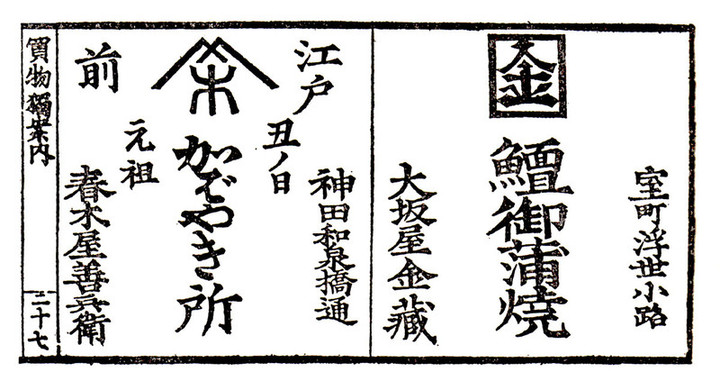 室町浮世小路
大金
鱣御蒲焼
大坂屋金藏
神田和泉橋通
江戸
前
丑ノ日
元祖
木
かばやき所
春木屋善兵衛
買物獨案内
二十七